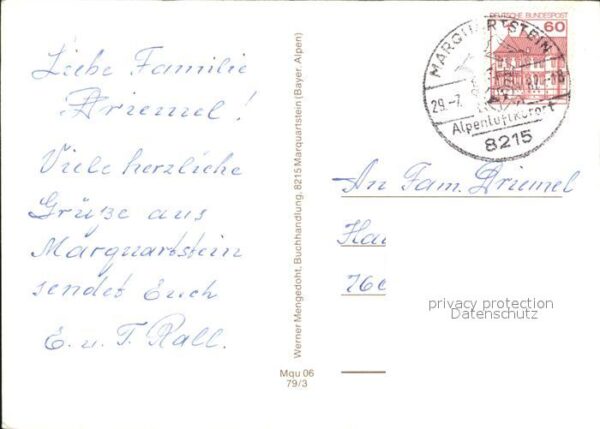 Liebe Familie
Driemel!
Viele herzliche
Grüße aus
Marquartstein
sendet Euch
E. u. T. Rall.
Werner Mengedoht, Buchhandlung, 8215 Marquartstein (Bayer. Alpen)
Mqu 06
79/3
DEUTSCHE BUNDESPOST
60
MARQUARTSTEIN
29.-7.
-18
Alpenluftkurort
8215
An Fam. Driemel
privacy protection
Datenschutz